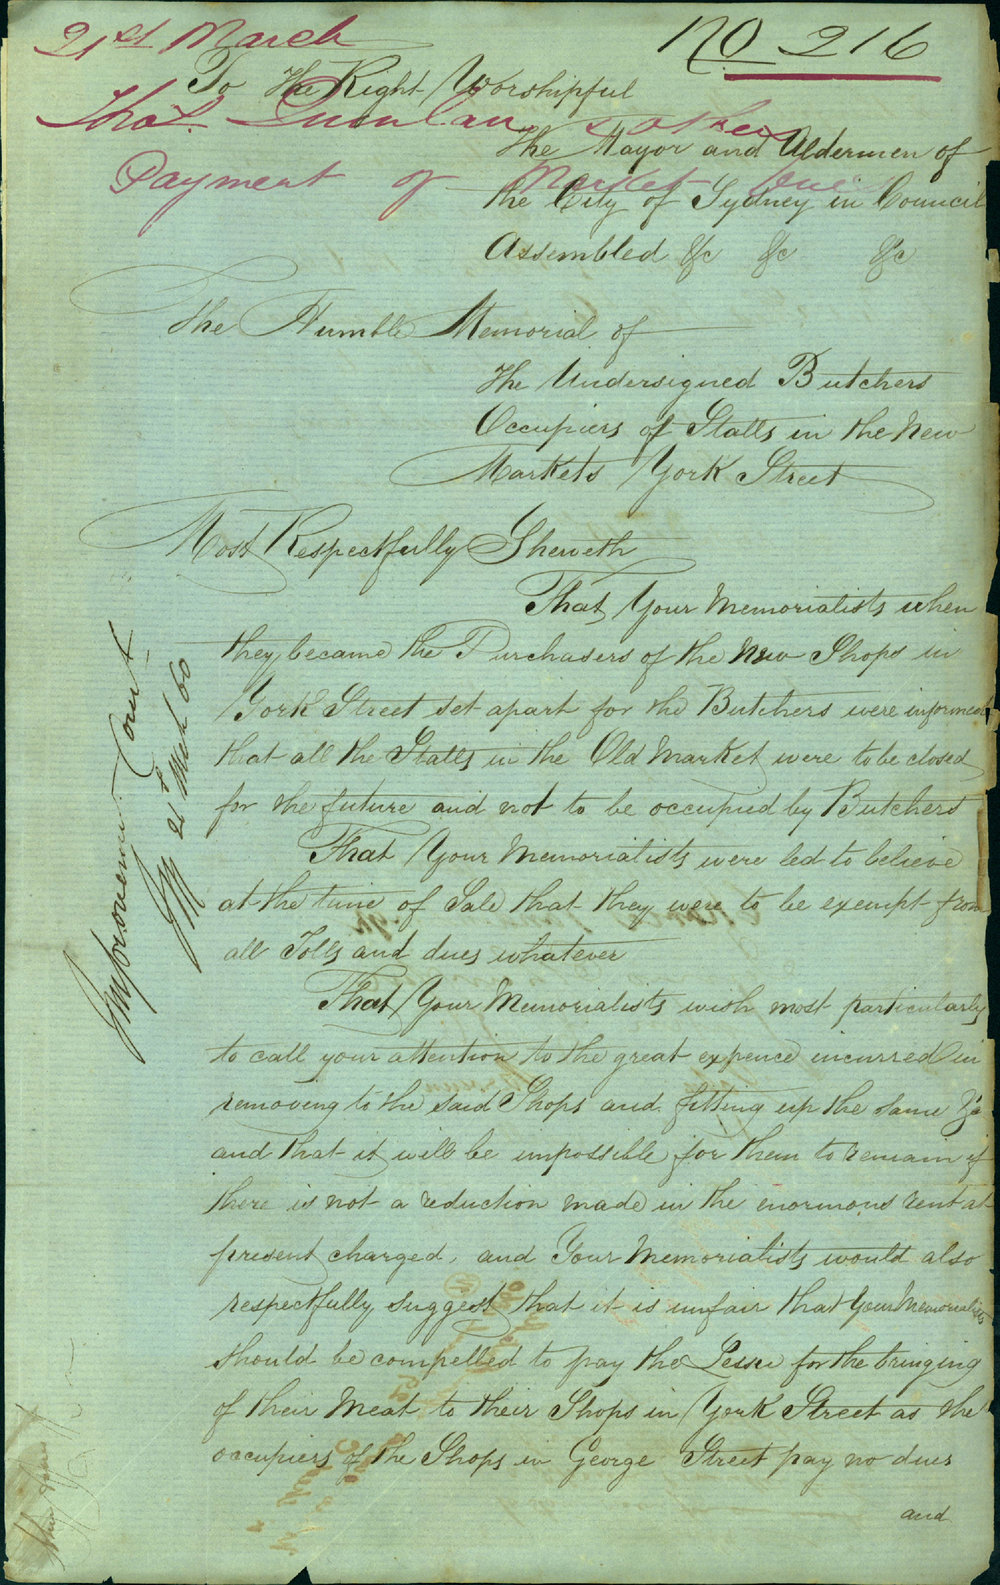 21st March
No 216
Thos. Quinlan & others
Payment of Market Dues
To The Right Worshipful
The Mayor and Aldermen of
the City of Sydney in Council
Assembled &c &c &c
The Humble Memorial of
The Undersigned Butchers
Occupiers of Stalls in the New
Markets York Street
Most Respectfully Sheweth
That Your Memorialists when
they became the Purchasers of the New Shops in
York Street set apart for the Butchers were informed
that all the Stalls in the Old Market were to be closed
for the future and not to be occupied by Butchers
That Your Memorialists were led to believe
at the time of Sale that they were to be exempt from
all Tolls and dues whatever
That Your Memorialists wish most particularly
to call your attention to the great expence incurred in
removing to the said Shops and fitting up the same &c
and that it will be impossible for them to remain if
there is not a reduction made in the enormous rent at
present charged, and Your Memorialists would also
respectfully suggest that it is unfair that Your Memorialists
should be compelled to pay the Lessee for the bringing
of their Meat to their Shops in York Street as the
occupiers of the Shops in George Street pay no dues
and
Improvement Comt
21st Mch 60